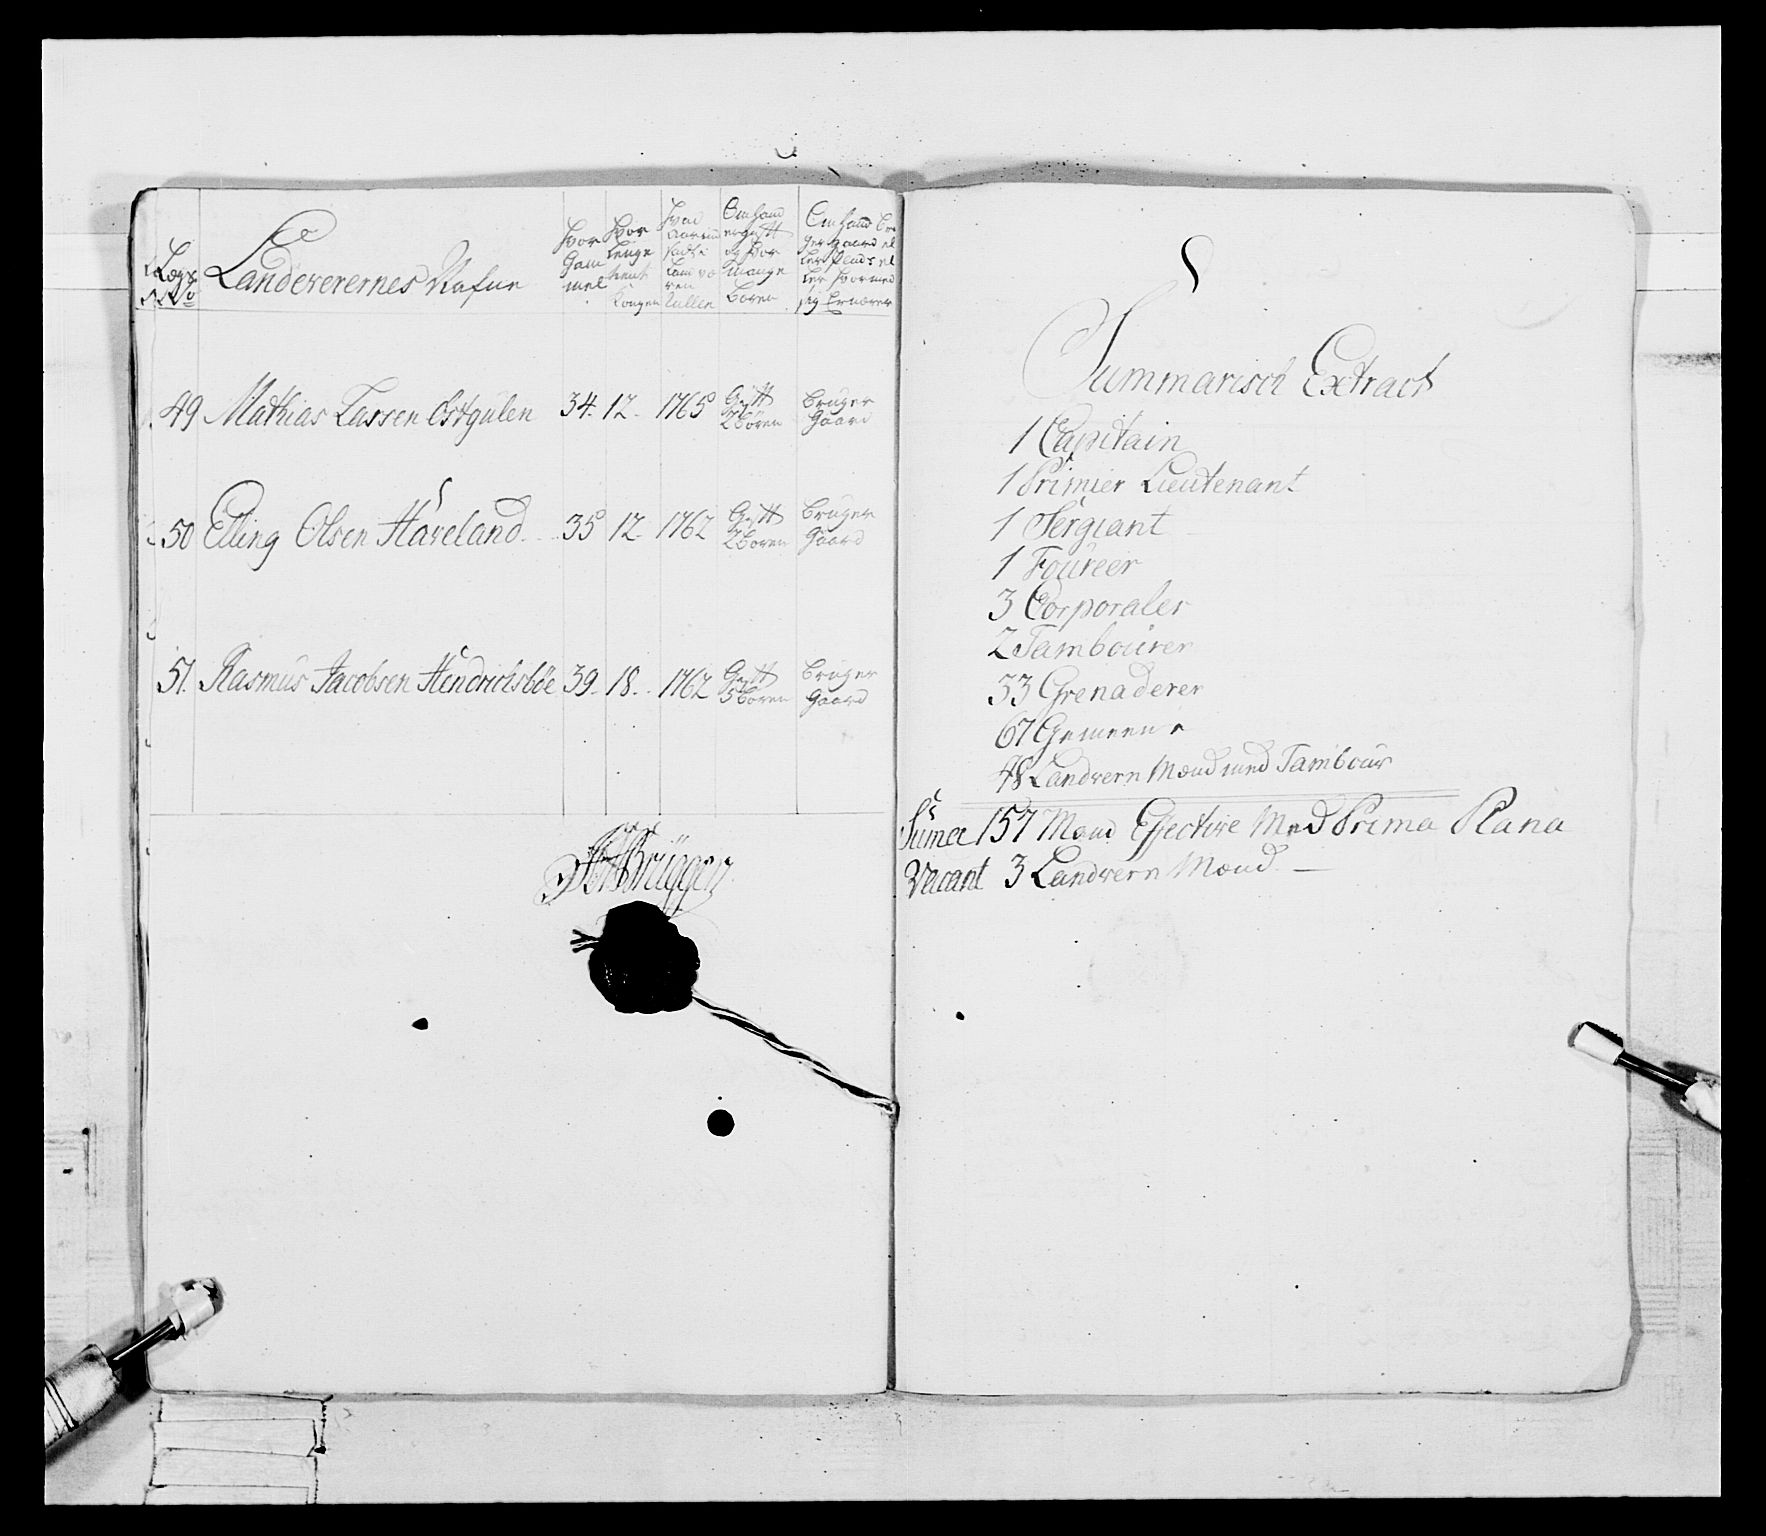 Lægs No
Landevererernes Nafne
Hvor Gammel
Hvor Lenge tient Kongen
Hvad Aar indsadt i Landværen Rullen
Om hand er gyftt og Hvor Mange Boren
Om hand Bruger gaard eller Plads eller hvormed sig Ernærer
49 Mathias Lassen Østgulen 34. 12. 1765 Gyftt 2 Bören Bruger Gaard
50 Elling Olsen Håveland 35 12. 1762 Gyftt 2 Boren Bruger Gaard
51. Rasmus Jacobsen Hendrichsböe 39. 18. 1762 Gyftt 3 Bören Bruger Gaard
Brüggen
Summarisch Extract
1 Capitain
1 Primier Lieutenant
1 Sergiant
1 Foureer
3 Corporaler
2 Tambourer
33 Grenaderer
67 Gemeene
48 Landvern Mænd med Tambour
Suma 157 Mand Effective Med Prima Plana
Vacant 3 Landvern Mænd.